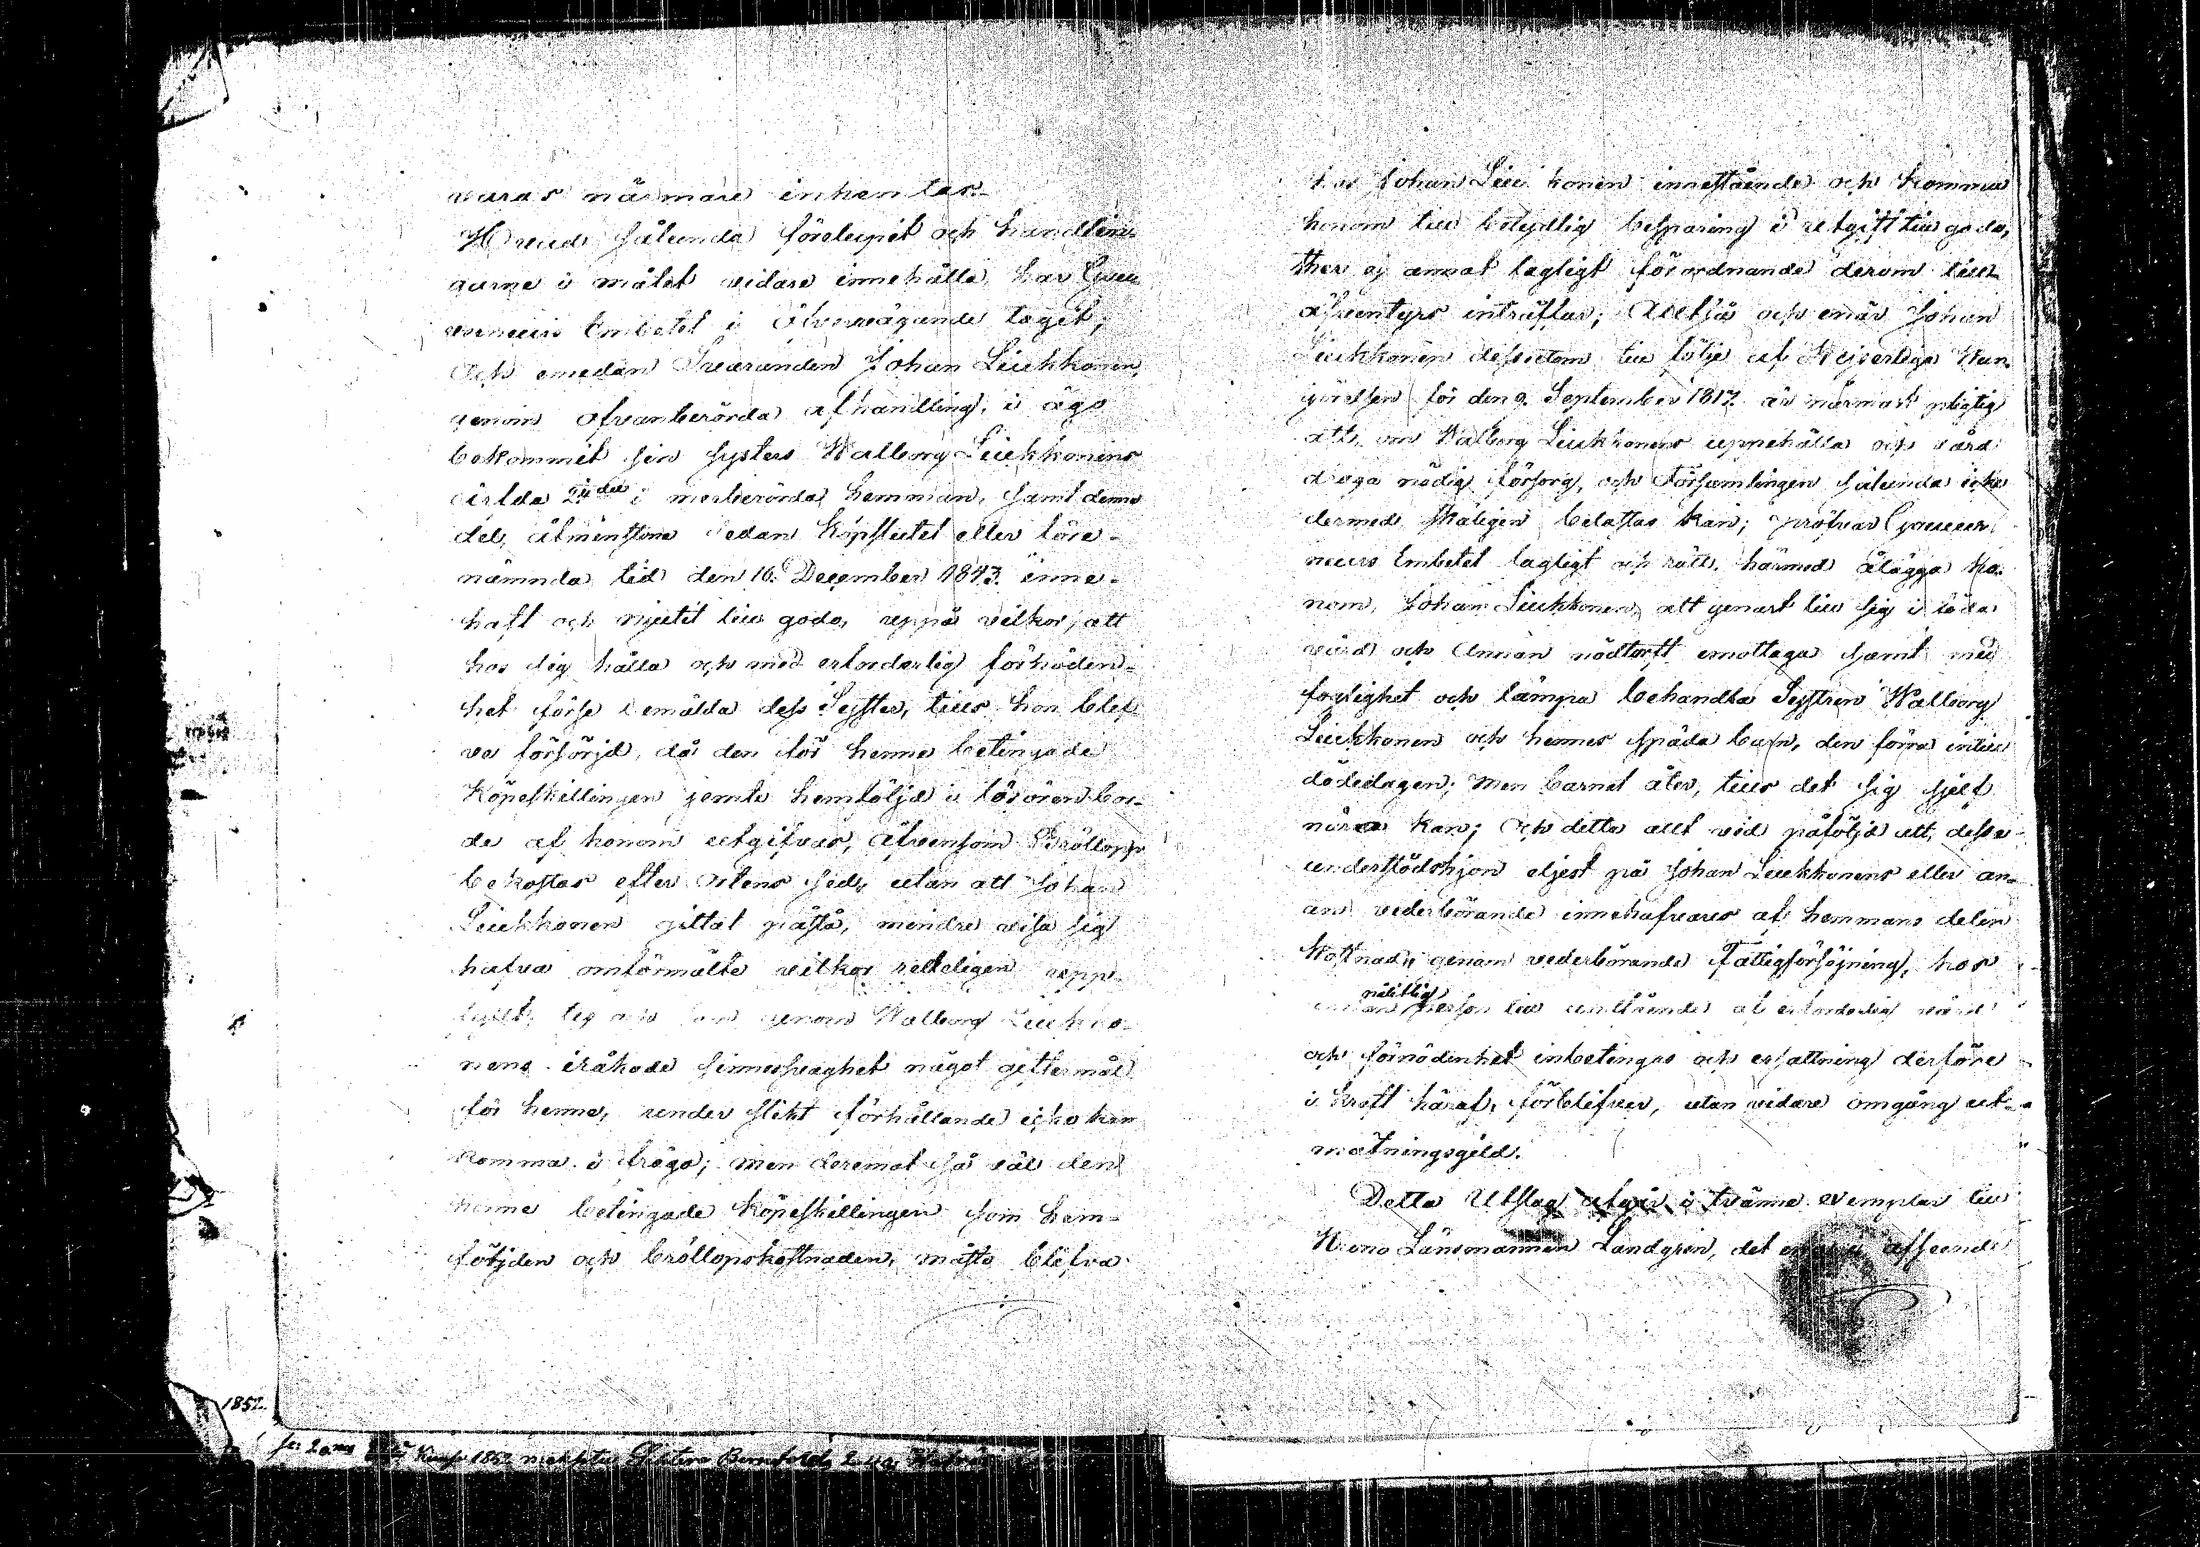 varas närmare inhemtas.
Hvad sålunda förelupit och handlin-
garne i målet vidare innehålla, har Gouver-
neurs Embetet i öfvervägande tagit;
Och emedan Svaranden Johan Liukkonen,
genom ofvanberörda afhandling, i ägo
bekommit sin systers Walborg Liukkonens
ärfda i merberörda hemman, samt denna
del, åtminstone sedan köpslutet eller före-
nämnda tid den 16. December 1843. inne-
haft och njutit till godo, uppå vilkor, att
hos sig hålla och med erforderlig förnöden-
het förse bemälda dess Syster, tills hon blef-
ve försörjd, då den för henne betingade
Köpeskillingen jemte hemföljd i lösören bor-
de af honom utgifvas, äfvensom Bröllopp
bekostas efter Ortens sed, utan att Johan
Liukkonen gittat påstå, mindre visa sig
hafva omförmälte vilkor redeligen upp-
fyllt, tog och som genom Walborg Liukko-
nens iråkade sinnessvaghet något giftermål
för henne, under slikt förhållande icke kan
komma i fråga; men deremot så väl den
henne betingade köpeskillingen som hem-
följden och bröllopskostnaden, måste blifva
hos Johan Liukkonen innestående och komma
honom till betydlig besparing i utgift till godo,
ther ej annat lagligt förordnande derom till
äfventyrs inträffar; Alltså och enär Johan
Liukkonen dessutom till följe af Kejserliga Kun-
görelsen för den 9. September 1817. är närmast pligtig
att, om Walborg Liukkonens uppehälle och vård
draga nödig försorg, och Församlingen sålunda icke
dermed skäligen belastas kan; pröfvar Gouver-
neurs Embetet lagligt och rätt, härmed ålägga ho-
nom, Johan Liukkonen, att genast till sig i föda
vård och annan nödtorft emottaga samt med
foglighet och lämpa behandla Systren Walborg
Liukkonen och hennes späda barn, den förra intill
dödedagen; men barnet åter, tills det sig sjelf
nära kan; Och detta allt vid påföljd att, dessa
understödshjon eljest på Johan Liukkonens eller an-
nans vederbörande innehafvares af hemmans delen
kostnad, genom vederbörande Fattigförsörjning, hos
annan pålitlig person till undfående af erforderlig vård
och förnödenhet inbetingas och ersättning derföre
i kraft häraf, förblifver, utan vidare omgång ut-
mätningsgild.
Detta Utslag utgår i tvänne exemplar till
Krono Länsmannen Landgren, det afseende
1852.